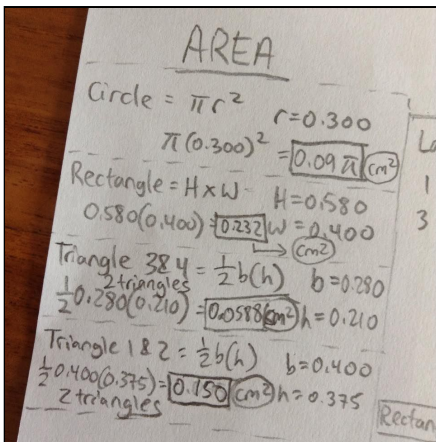 AREA
Circle = πr² r=0.300
π(0.300)² = 0.09π cm²
Rectangle = H x W H=0.580
0.580(0.400)= 0.232 W=0.400
cm²
Triangle 3&4 = ½b(h) b=0.280
2 triangles
½0.280(0.210)= 0.0588 cm² h=0.210
Triangle 1&2 = ½b(h) b=0.400
½0.400(0.375)= 0.150 cm² h=0.375
2 triangles
1
3